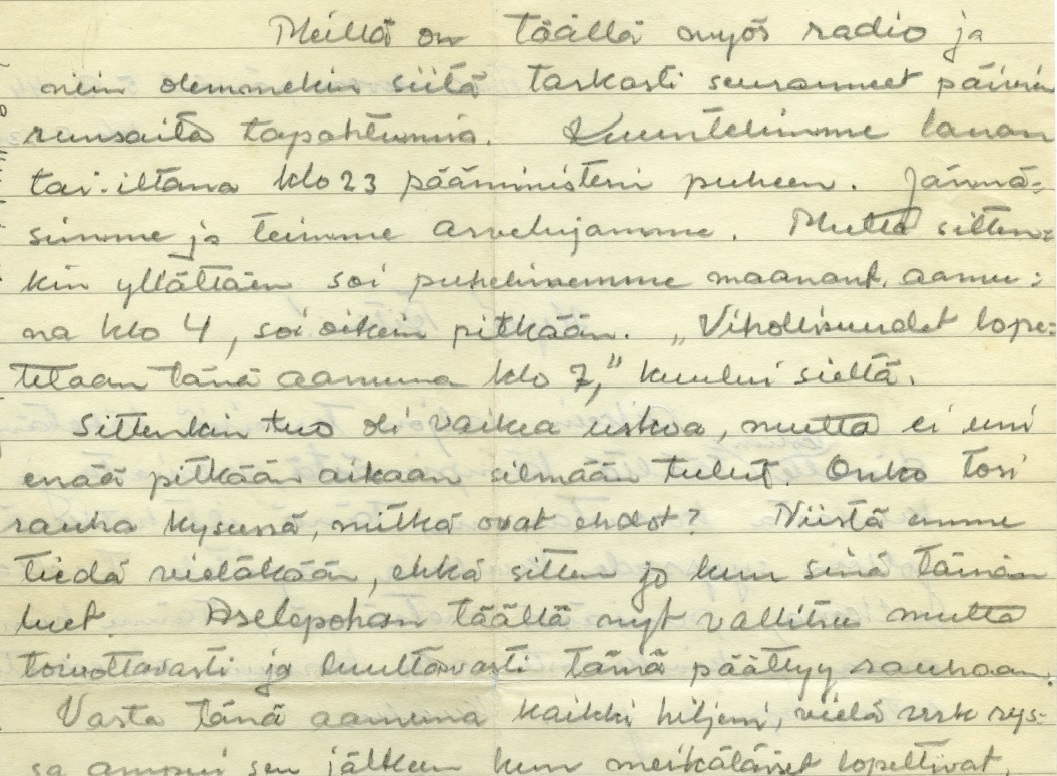 Meillä on täällä myös radio ja
niin olemmekin siitä tarkasti seuranneet päivien
runsaita tapahtumia. Kuuntelimme lauan
tai-iltana klo 23 pääministerin puheen. Jännä-
simme ja teimme arvelujamme. Mutta sitten-
kin yllättäen soi puhelinemme maanant. aamu-
na klo 4, soi oikein pitkään. „Vihollisuudet lope-
tetaan tänä aamuna klo 7," kuului sieltä.
Sittenkin tuo oli vaikea uskoa, mutta ei uni
enää pitkään aikaan silmään tullut. Onko tosi
rauha kysessä, mitkä ovat ehdot? Niistä emme
tiedä vieläkään, ehkä sitten jo kun sinä tämän
luet. Aselepohan täällä nyt vallitsee mutta
toivottavasti ja luultavasti tämä päättyy rauhaan.
Vasta tänä aamuna kaikki hiljeni, vielä rys-
sä ampui sen jälkeen kun meikäläiset lopettivat.